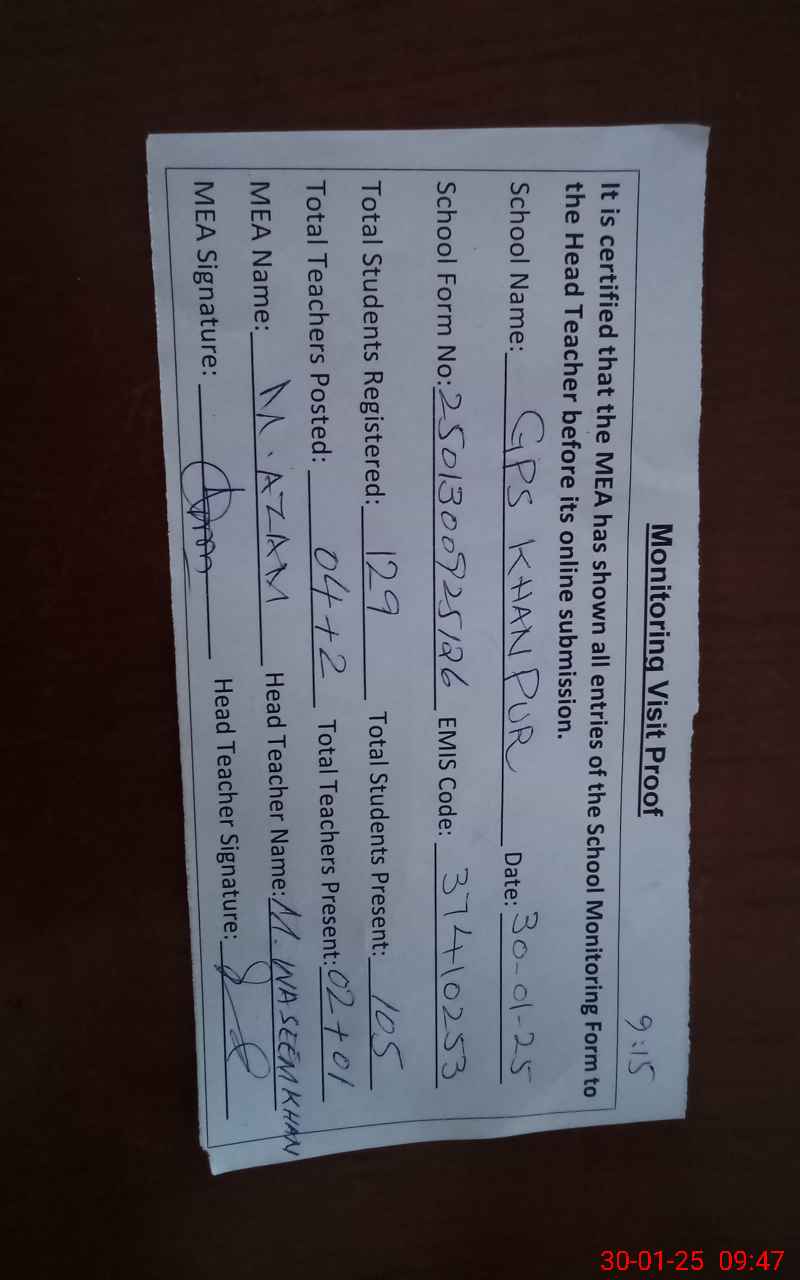 Monitoring Visit Proof
9:15
It is certified that the MEA has shown all entries of the School Monitoring Form to
the Head Teacher before its online submission.
School Name: GPS KHANPUR Date: 30-01-25
School Form No: 2501300925126 EMIS Code: 37410253
Total Students Registered: 129 Total Students Present: 105
Total Teachers Posted: 04+2 Total Teachers Present: 02+01
MEA Name: M. AZAM Head Teacher Name: M. WASEEM KHAN
MEA Signature: Head Teacher Signature:
30-01-25 09:47